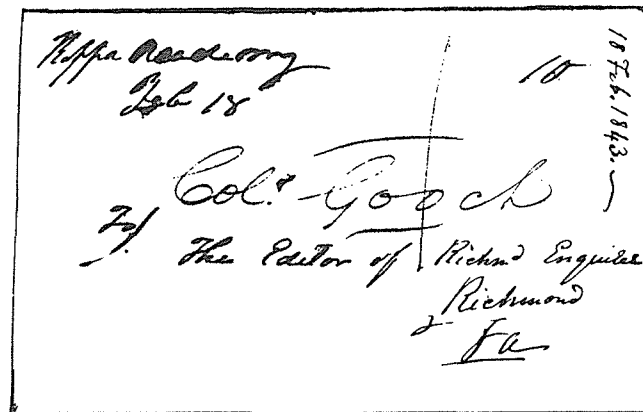 Feb 18
10
18 Feb. 1843.
Col. Gooch
To/
The Editor of Richmd Enquirer
Richmond
Va